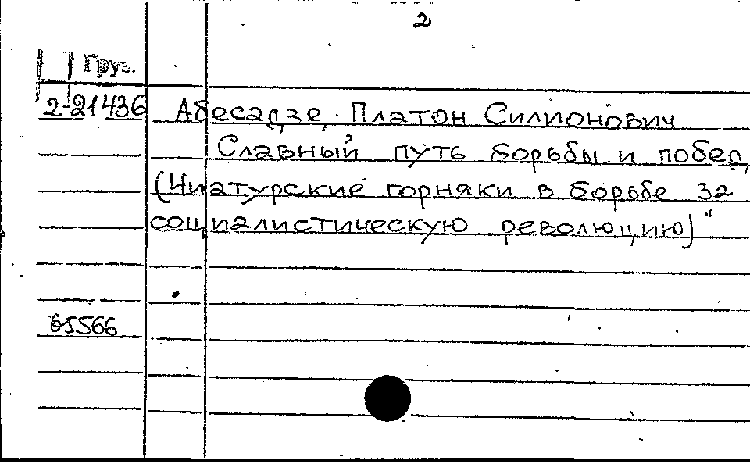 2
Груз.
2-21436 Абесадзе, Платон Силионович
Славный путь борьбы и побед
(Чиатурские горняки в борьбе за
социалистическую революцию)"
65566